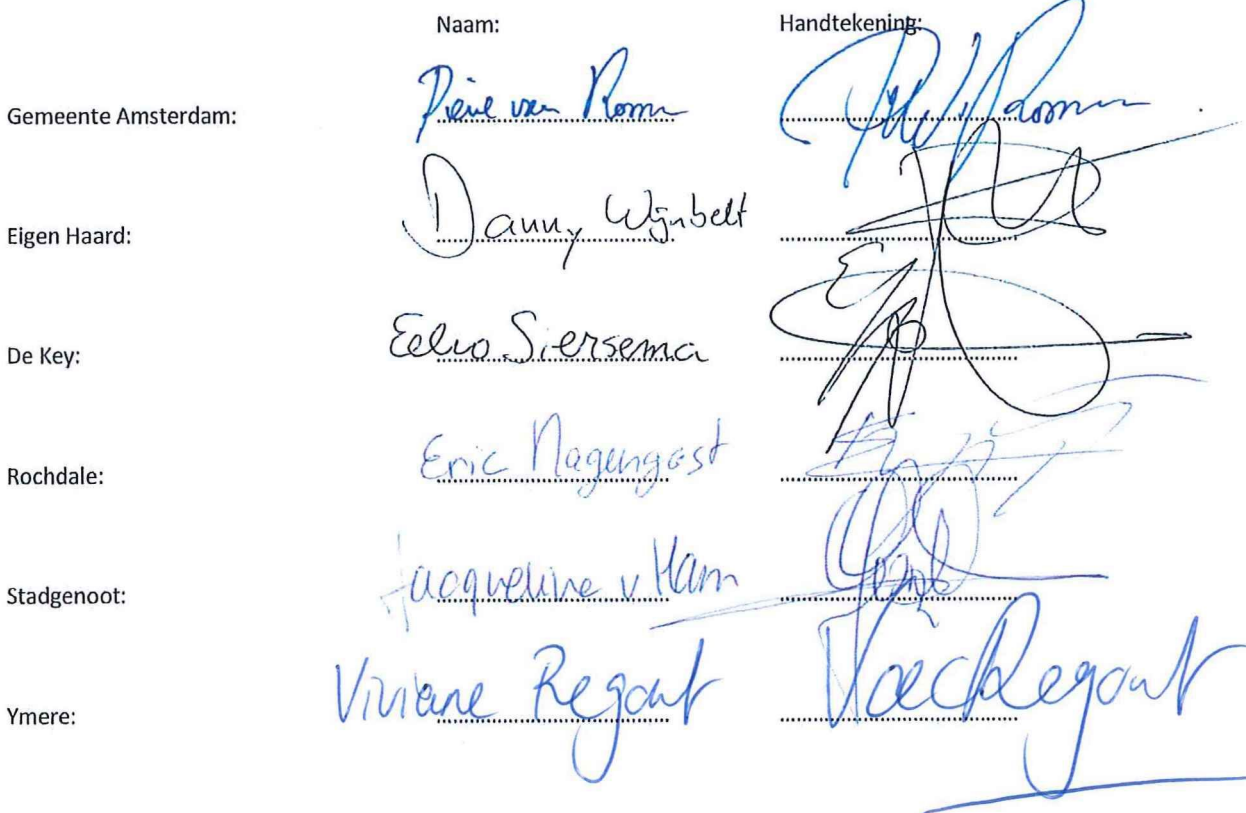 Naam: Handtekening:
Gemeente Amsterdam: van
Eigen Haard: Danny Wijnbelt
De Key: Eelco Siersema
Rochdale: Eric Nagengast
Stadgenoot: Jacqueline v Ham
Ymere: Viviane Regout Regout